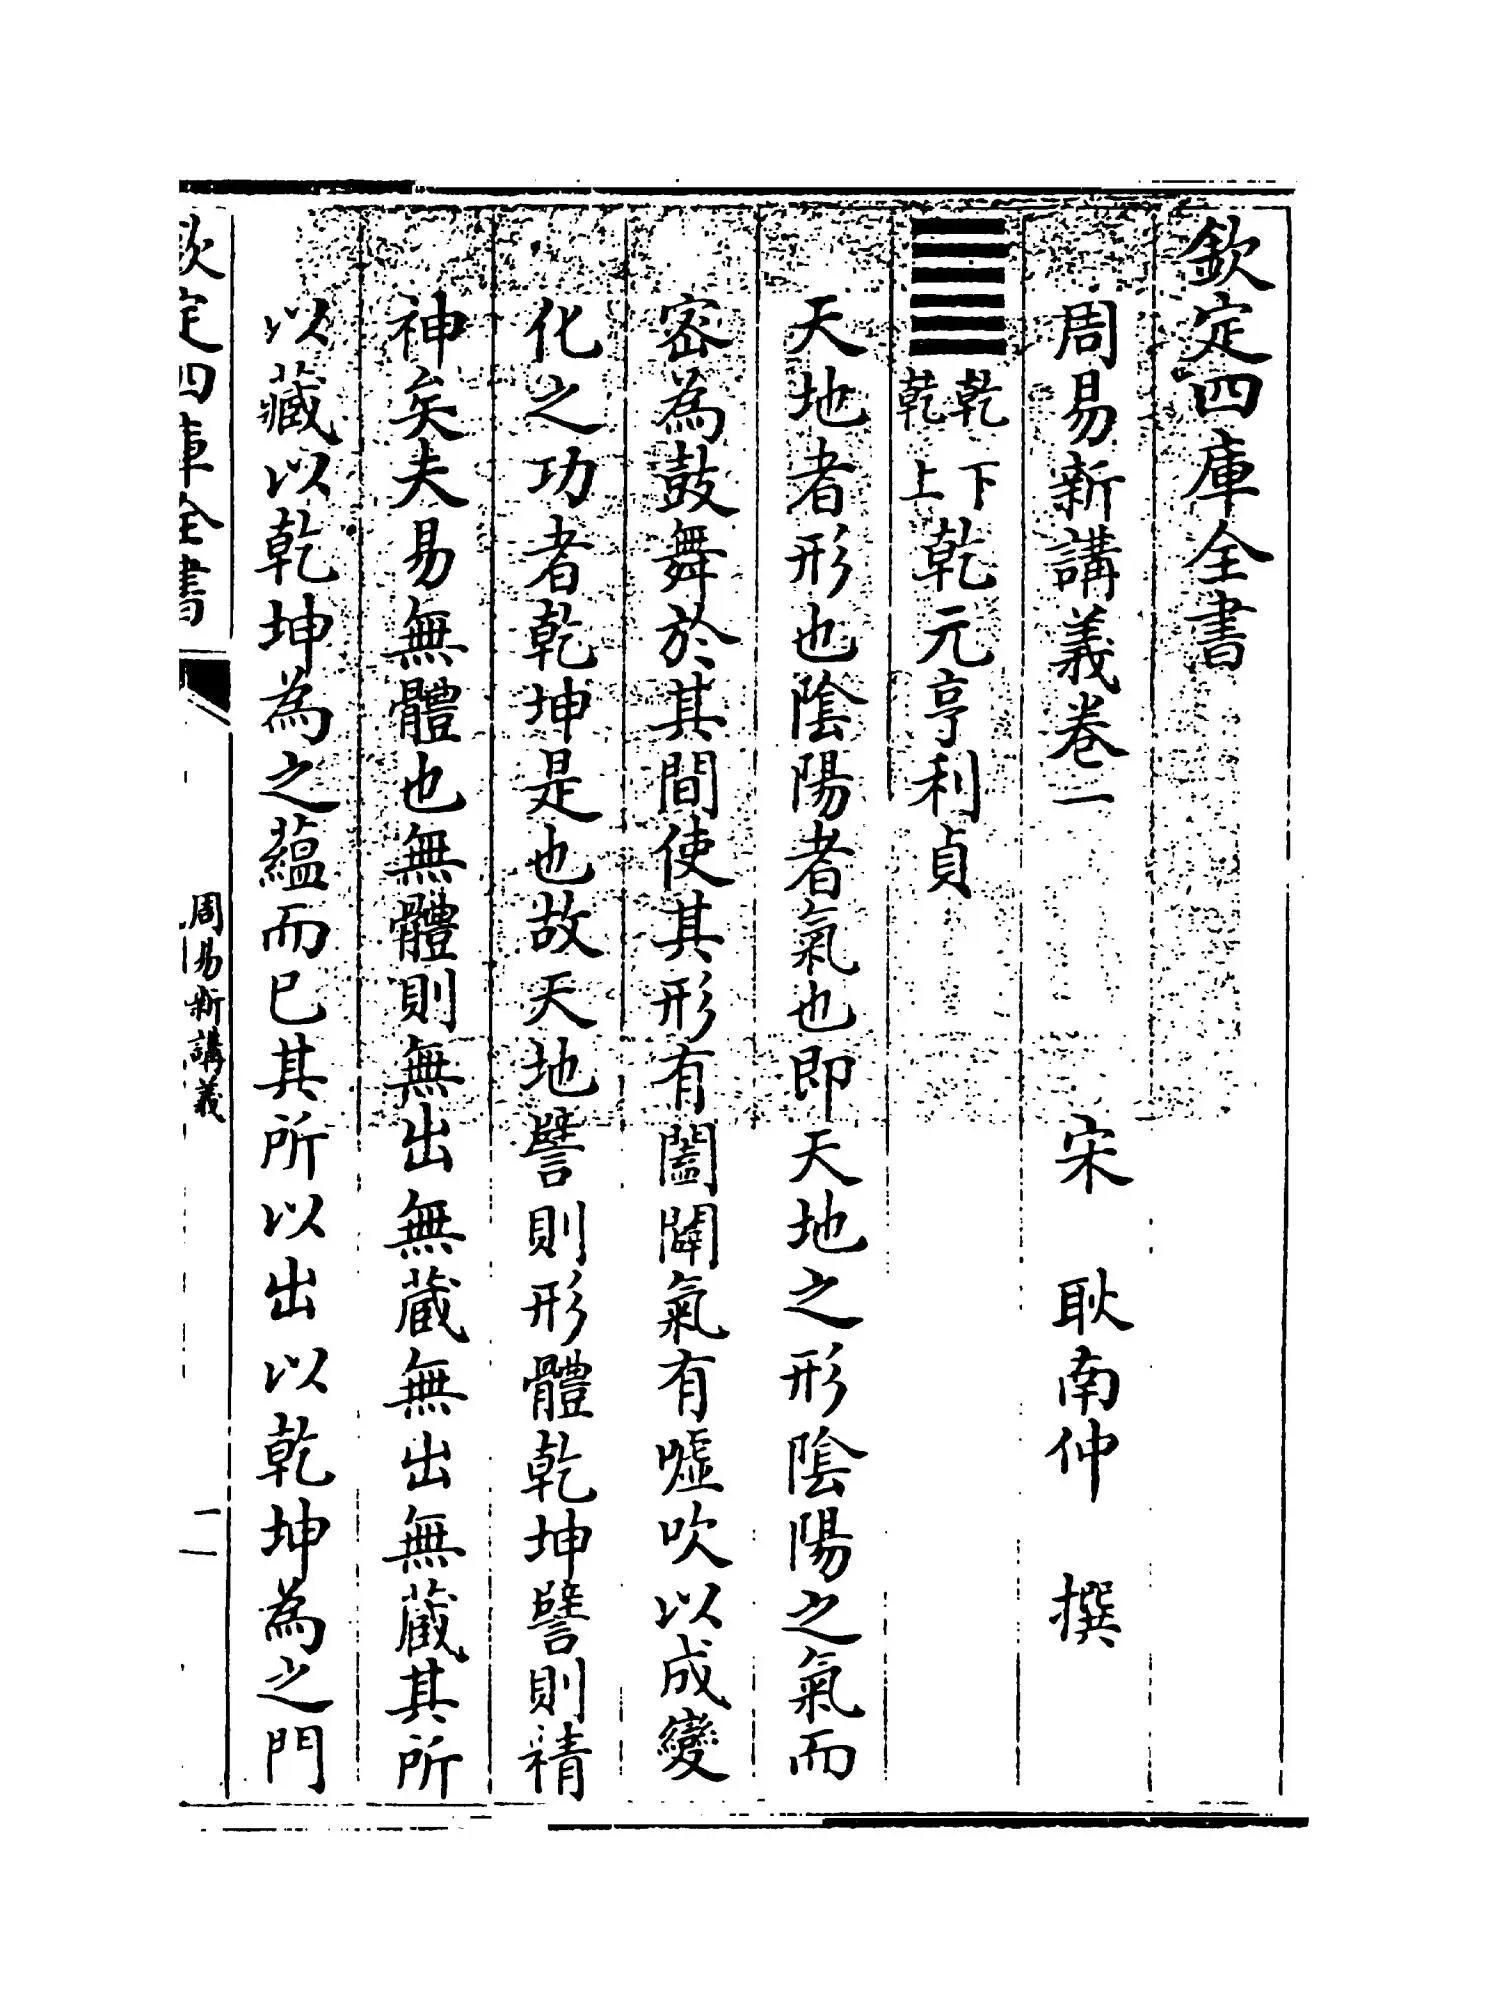 欽定四庫全書
周易新講義卷一　宋　耿南仲　撰
䷀乾下乾上乾元亨利貞
天地者形也陰陽者氣也即天地之形陰陽之氣而
密為鼓舞於其間使其形有闔闢氣有噓吹以成變
化之功者乾坤是也故天地譬則形體乾坤譬則精
神矣夫易無體也無體則無出無藏無出無藏其所
以藏以乾坤為之蘊而已其所以出以乾坤為之門
欽定四庫全書
周易新講義
一